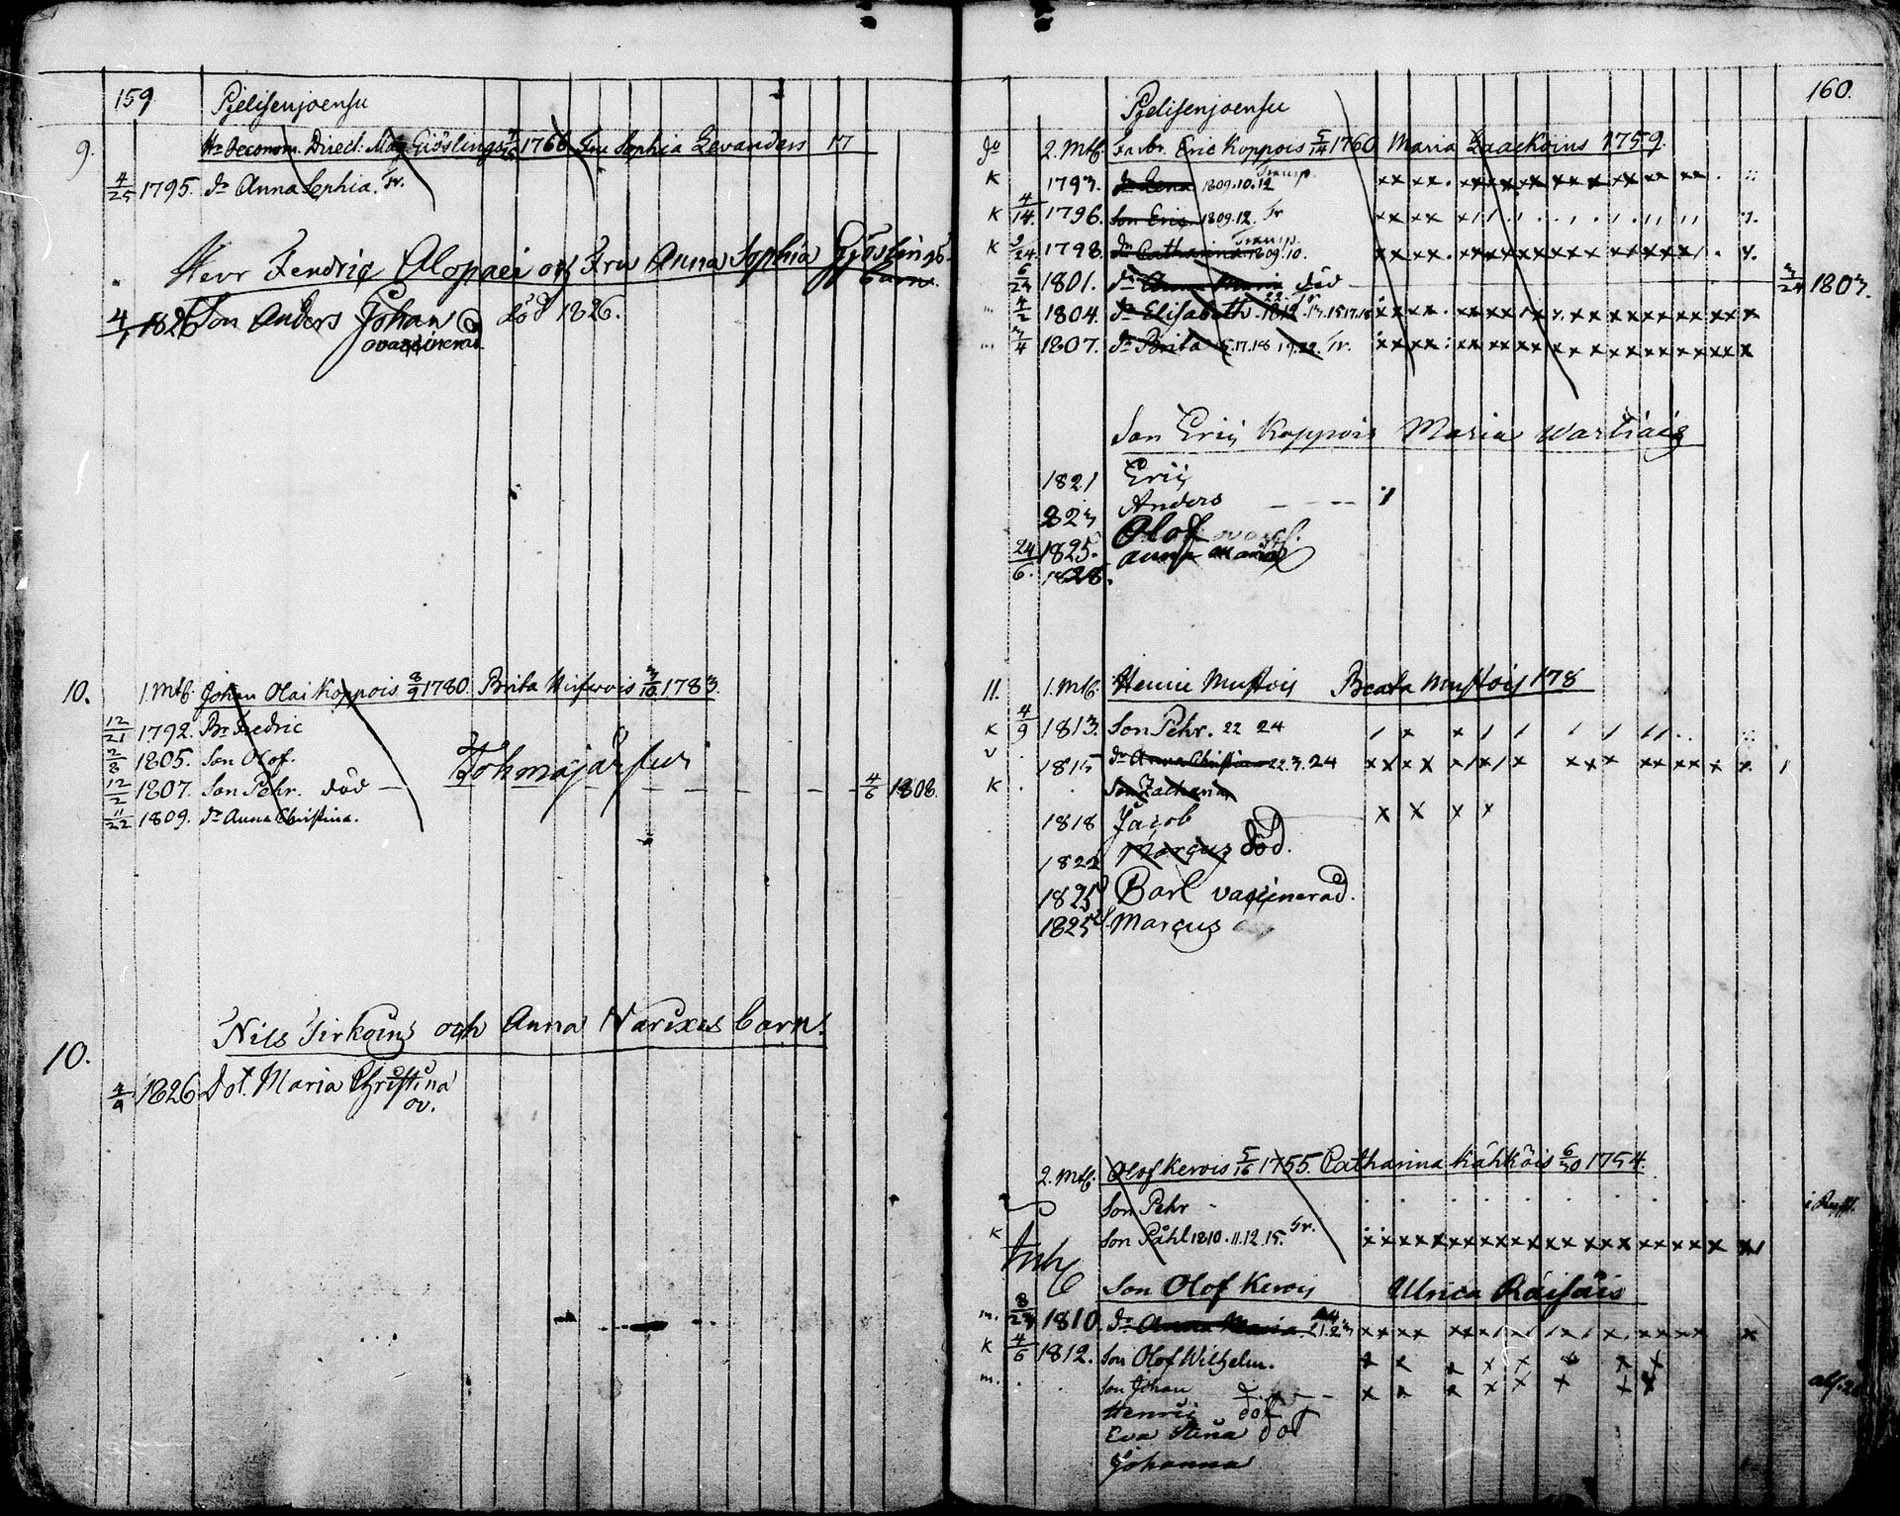 159. Pjelisenjoensu
9. Hr Oeconom. Direct: Mag Giöslings 1766 Fru Sophia Levanders 17
4/25 1795. Dr Anna Sophia. Fr.
Herr Fendric Alopaei och Fru Anna Sophia Gjöslings
barn.
4/1 1826 Son Anders Johan död 1826.
ovaccinerad
10. 1. Mtl. Johan Olai Koppois 8/9 1780. Brita Hirfwois 3/10 1783.
12/21 1792. Br Fredric
2/8 1805. Son Olof.
Tohmajärfwi
12/2 1807. Son Pehr. död 4/6 1808.
11/22 1809. Dr Anna Christina.
10. Nils Tirkoins och Anna Narixes barn.
4/9 1826 Dot. Maria Christina
ov.
160.
Pjelisenjoensu
Do 2. Mtl. Farbr. Eric Koppois 5/14 1760 Maria Laackoins 1759.
K 1793. Dr Lena 1809.10.12
K 4/14. 1796. Son Eric 1809.12. Fr
K 9/24. 1798. Dr Catharina 1809.10.
6/23 1801. Dr Anna Maria död 3/24 1803.
4/2 1804. Dr Elisabeth
3/4 1807. Dr Brita 15.17.18 19.22. Fr.
Son Eric Koppois Maria
1821 Eric
823 Anders
24/6. 1825. Olof vacc.
1828. Anna Maria
11. 1. Mtl. Henric Mustois Beata Mustois 178
K 4/9 1813. Son Pehr. 22 24
v 1815 Dr Anna Christina 22.3.24
K Son Zacharias
1818 Jacob
1822 Marcus död.
1825 Carl vaccinerad.
1825 S. Marcus
2. Mtl. Olof Kerois 5/16 1755. Catharina Kähköis 6/30 1754.
Son Pehr
K Son Påhl 1810.11.12.15. Fr.
Inh
Son Olof Kerois Ulrica Räisäis
m. 8/23 1810. Dr Anna Maria 21.23
K 4/6 1812. Son Olof Wilhelm.
m. Son Johan
Henric död
Eva Stina död
Johanna